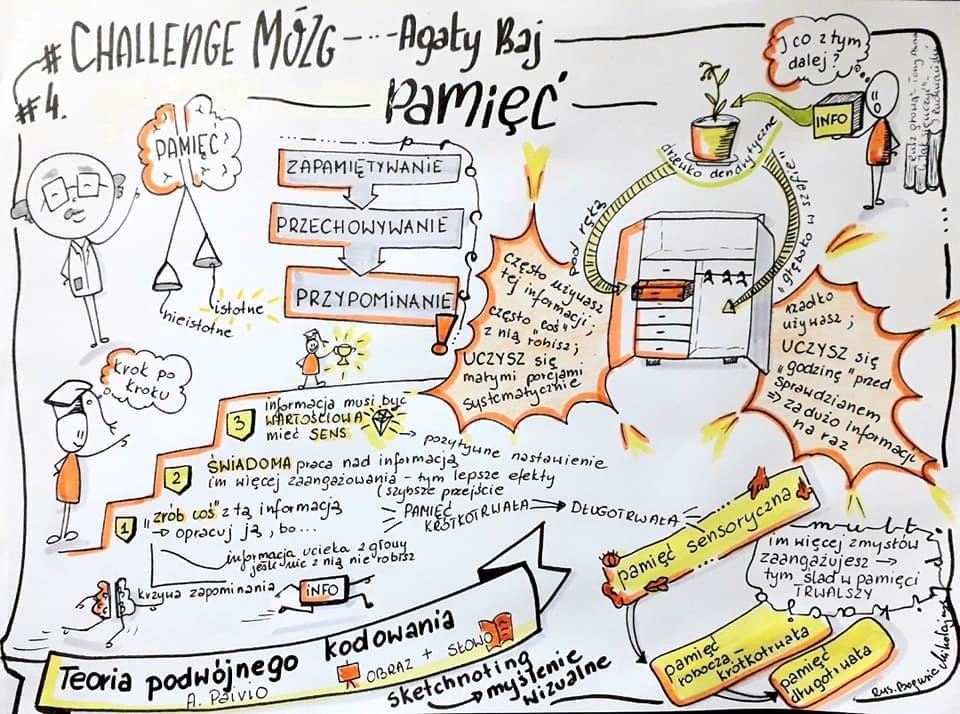 # CHALLENGE MÓZG - Agaty Baj
#4.
Pamięć
J co z tym
dalej?
INFO
PAMIĘĆ?
istotne
nieistotne
ZAPAMIĘTYWANIE
PRZECHOWYWANIE
PRZYPOMINANIE!
drzewko dendrytyczne
pod ręką
"głęboko w szafie"
często używasz
tej informacji;
często "coś"
z nią robisz;
UCZYSZ SIĘ
małymi porcjami
systematycznie
rzadko
używasz;
UCZYSZ SIĘ
"godzinę" przed
sprawdzianem
⇒ za dużo informacji
na raz
krok po
kroku
3
informacja musi być
WARTOŚCIOWA
mieć SENS
→ pozytywne nastawienie
2
ŚWIADOMA praca nad informacją
im więcej zaangażowania - tym lepsze efekty
(szybsze przejście
PAMIĘĆ
KRÓTKOTRWAŁA → DŁUGOTRWAŁA
1
"zrób coś" z tą informacją
→ opracuj ją, bo...
informacja ucieka z głowy
jeśli nic z nią nie robisz
krzywa zapominania
INFO
pamięć sensoryczna
mult
im więcej zmysłów
zaangażujesz →
tym ślad w pamięci
TRWALSZY
pamięć
robocza -
krótkotrwała
pamięć
długotrwała
Teoria podwójnego kodowania
A. Paivio
OBRAZ + SŁOWO
sketchnoting
→ myślenie
wizualne